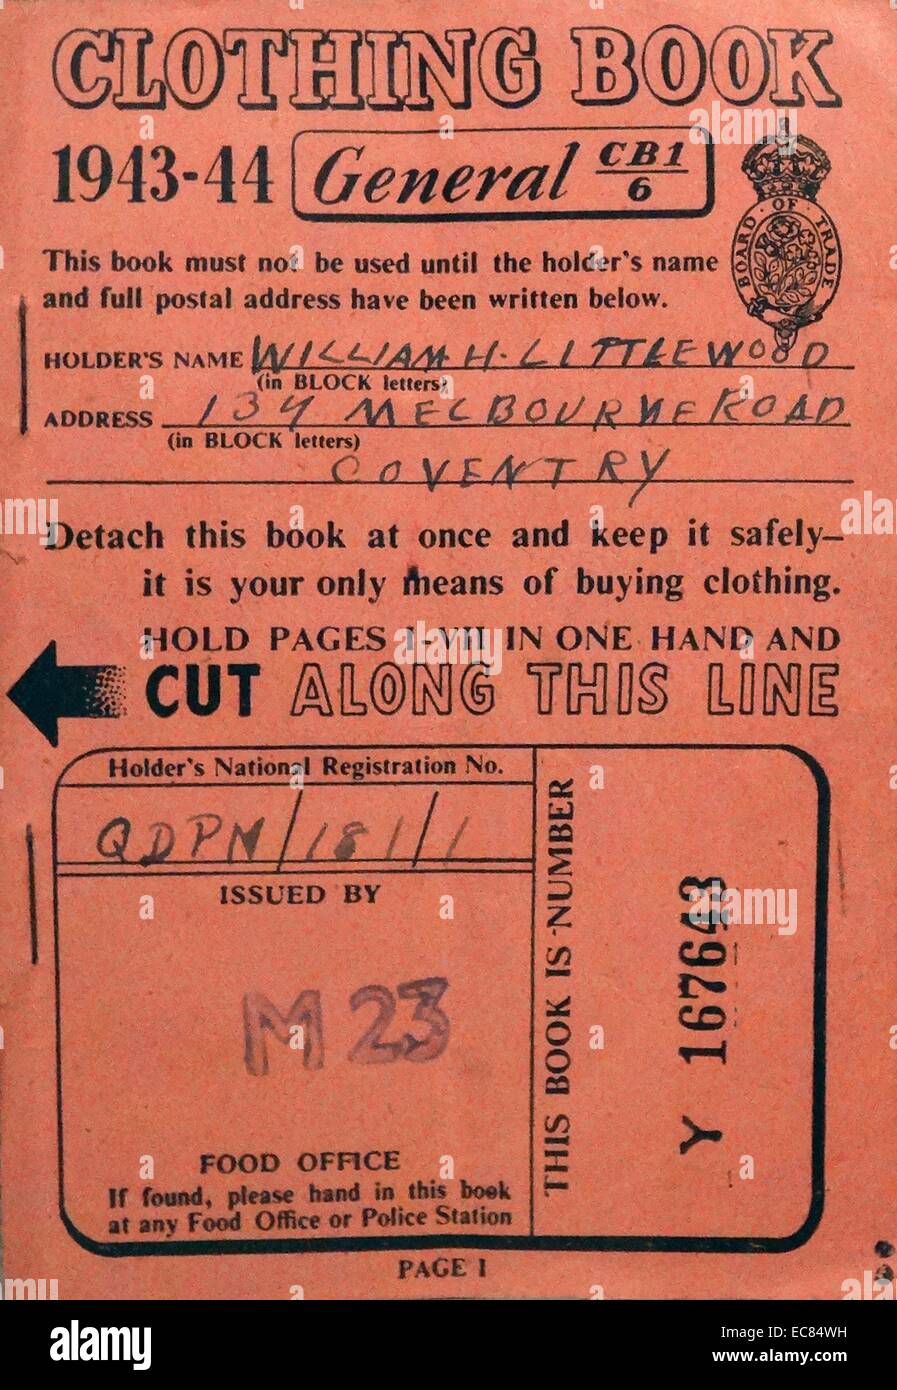 CLOTHING BOOK
1943-44 General CB1/6
BOARD OF TRADE
This book must not be used until the holder's name
and full postal address have been written below.
HOLDER'S NAME WILLIAM H. LITTLEWOOD
(in BLOCK letters)
ADDRESS 134 MELBOURNE ROAD
(in BLOCK letters)
COVENTRY
Detach this book at once and keep it safely—
it is your only means of buying clothing.
HOLD PAGES I-VII IN ONE HAND AND
CUT ALONG THIS LINE
Holder's National Registration No.
QDPN/181/1
ISSUED BY
M 23
FOOD OFFICE
If found, please hand in this book
at any Food Office or Police Station
THIS BOOK IS NUMBER
Y 167643
PAGE I
alamy
Image ID: EC84WH
www.alamy.com